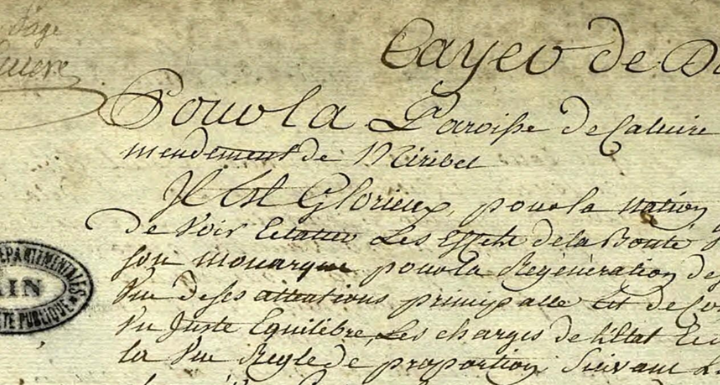 Page
Cayer de D
Pour la Paroisse de Caluire
mendement de Miribel
Il Est Glorieux, pour la nation
de Voir Eclater Les Effets de la Bonté
son monarque pour la Regénération de
Vue de ses attentions principalle Est de
Un Juste Equilibre, Les charges de l'Etat
la Vue Regle de proportion, Suivant
DÉPARTEMENTALES
AIN
PUBLIQUE